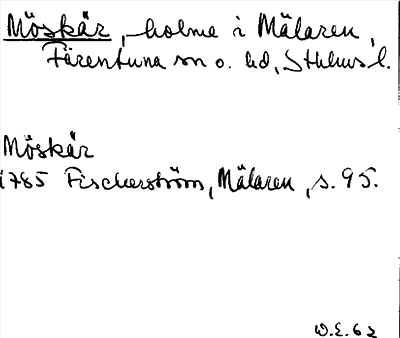 Möskär, holme i Mälaren,
Färentuna sn o. hd, Sthlms l.
Möskär
1785 Fischerström, Mälaren, s. 95.
W.E. 62